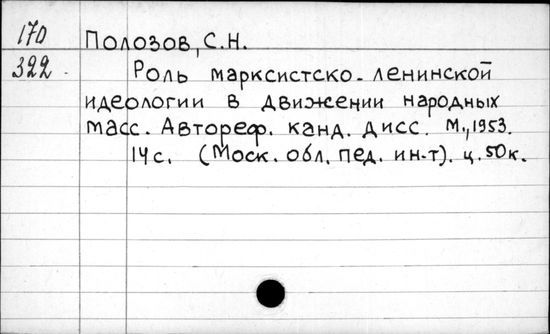 170
322.
Полозов, С.Н.
Роль марксистско-ленинской
идеологии в движении народных
масс. Автореф. канд. дисс. М., 1953.
14с. (Моск. обл. пед. ин-т). ц. 50к.